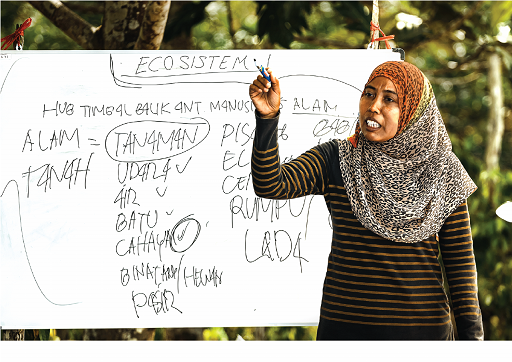 ECOSISTEM
HUB TIMBAL BALIK ANT MANUS ALAM
ALAM = TANAMAN
TANAH
UDARA
AIR
BATU
CAHAYA
BINATANG/HEWAN
PASIR
PIS
RUMPU
LADA